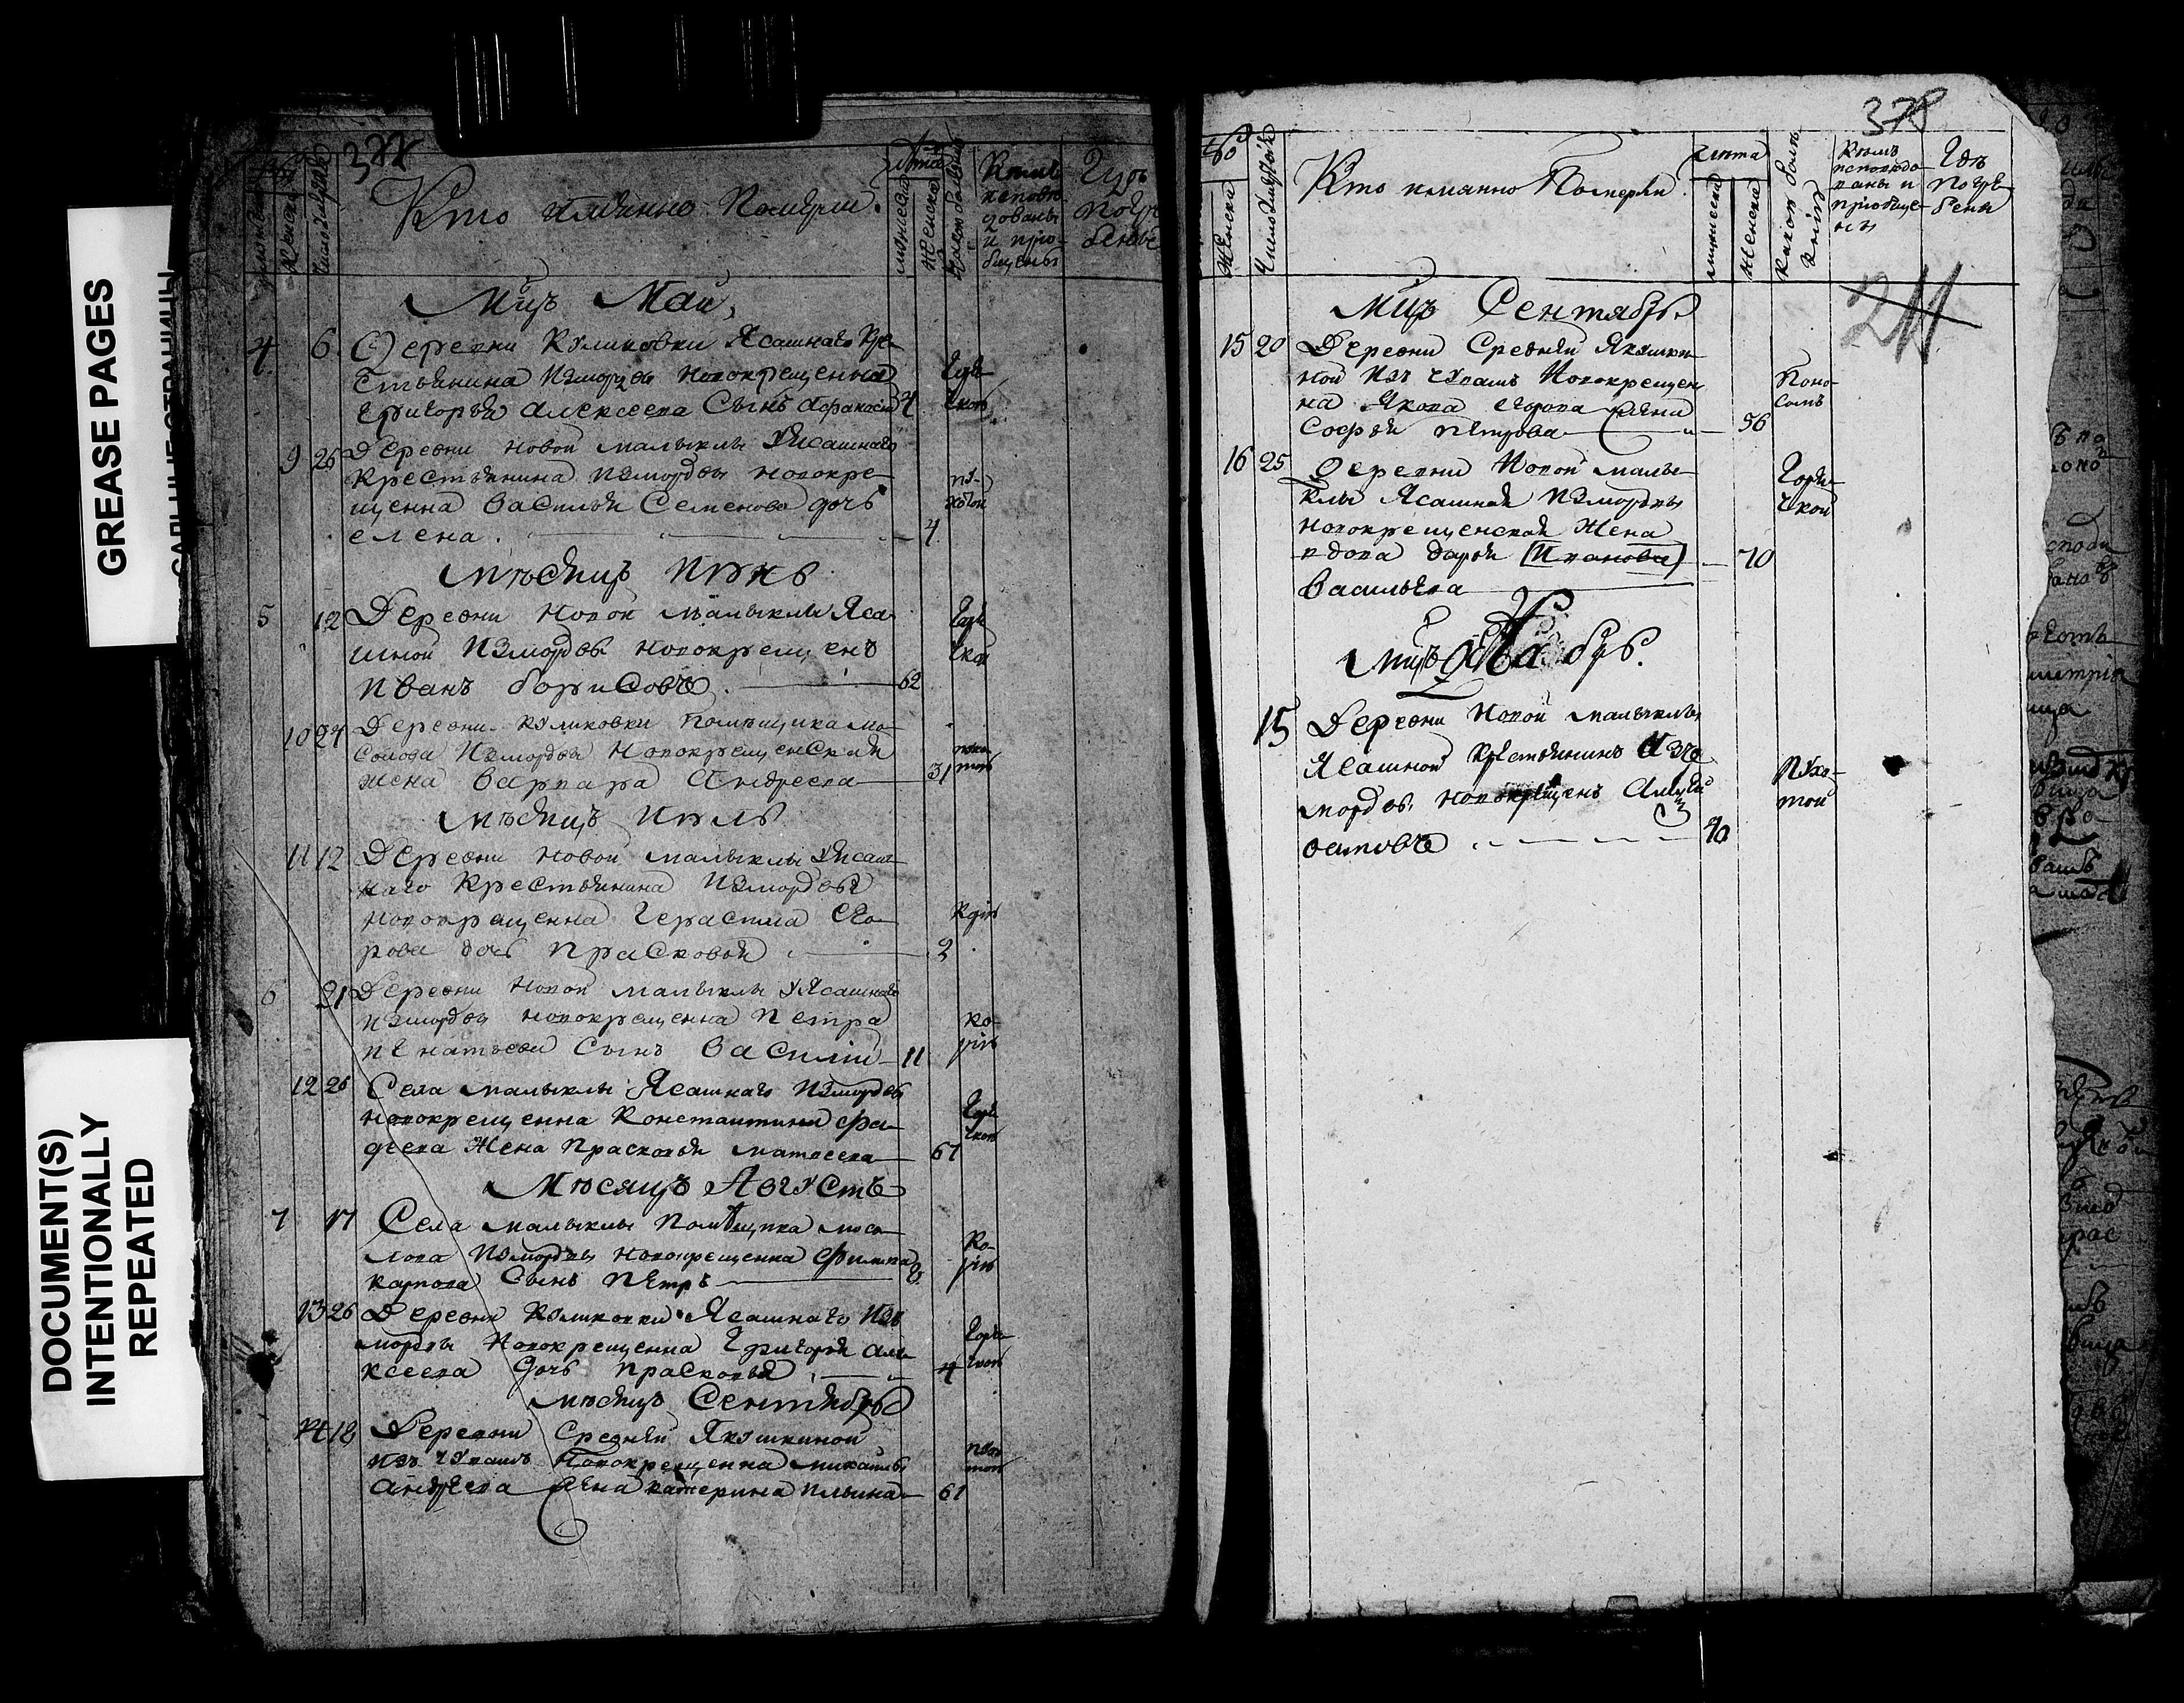 GREASE PAGES
САЛЬНЫЕ СТРАНИЦЫ
DOCUMENT(S)
INTENTIONALLY
REPEATED
377
Женска
Кто имянно Померли.
Лѣта
мужеска
Женска
Кѣмъ
исповѣ
дованы
и прио-
бщены
Гдѣ
погре
бены
Мцъ Май,
4 6 Деревни Куликовки Ясашнаго Кре-
стьянина измордвы новокрещенна
Григорья Алексеева Сынъ 4
Горя-
чкою
9 26 Деревни новой малыклы Ясашнаго
крестьянина измордвы новокре-
щенна Василья Семенова дочь
елена. 4
Мѣсяцъ Июнь
5 12 Деревни новой малыклы Яса-
шной измордвы новокрещенъ
иванъ борисовъ 62
Горя-
чкой
10 24 Деревни куликовки помѣщика мо-
солова измордвы новокрещенской
жена варвара Андреева 31
Мѣсяцъ Июль
11 12 Деревни новой малыклы Ясаш-
наго крестьянина измордвы
новокрещенна Герасима Его-
рова дочь прасковья 2
Корью
6 21 Деревни новой малыклы Ясашнаго
измордвы новокрещенна петра
игнатьева Сынъ Василии 11
ко-
рью
12 26 Села малыклы Ясашнаго измордвы
новокрещенна Константина фа-
деева Жена прасковья матвеева 67
Горя-
чкою
Мѣсяцъ Августъ
7 17 Села малыклы помѣщика мосо-
лова измордвы новокрещенна филипа
карпова Сынъ петръ
Ко-
рью
13 26 Деревни куликовки Ясашнаго из
мордвы новокрещенна Григорья але-
ксеева дочь прасковья 4
Горя-
чкою
мѣсяцъ Сентябрь
14 18 Деревни Средней Якушкиной
изъ чувашъ новокрещенна михаила
андреева жена катерина ильина 61
378
Женска
Число мертвыхъ
Кто имянно Померли
Лѣта
мужеска
женска
Какою болѣ
знію
Кѣмъ
исповѣдо-
ваны и
приобще-
ны
Гдѣ
погре
бены
211
Мцъ Сентябрь
15 20 Деревни Средней Якушки-
ной изъ чувашъ Новокрещен
на Якова егорова жена
Софья петрова 56
Поно-
сомъ
16 25 Деревни Новой малы-
клы Ясашной измордвы
новокрещенской Жена
вдова дарья (Иванова)
Васильева 70
Горя-
чкой
15 Деревни Новой малыклы
Ясашной крестьянинъ изъ
мордвы новокрещенъ
осиповъ 70